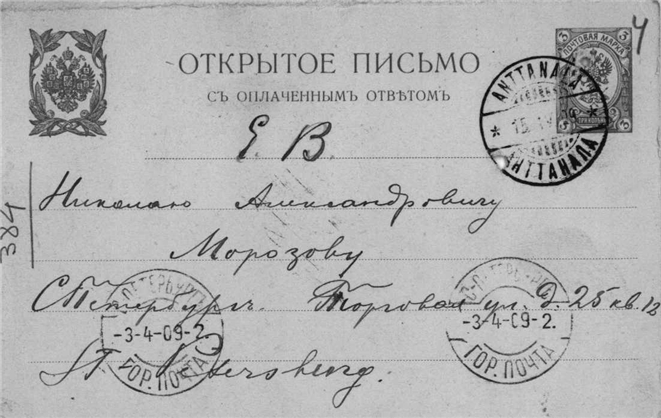 4
3 ПОЧТОВАЯ МАРКА 3
ОТКРЫТОЕ ПИСЬМО
СЪ ОПЛАЧЕННЫМЪ ОТВѢТОМЪ
ANTTANALA
* 15. *
АНТТАНАЛА
3 ТРИ КОП. 3
Е. В.
384
Николаю Александровичу
Морозову
С Петербургъ. Торговая ул. Д. 25 кв. 12
С-ПЕТЕРБУРГЪ
-3-4-09-2.
ГОР. ПОЧТА
-3-4-09-2.
ГОР. ПОЧТА
St. Petersburg.